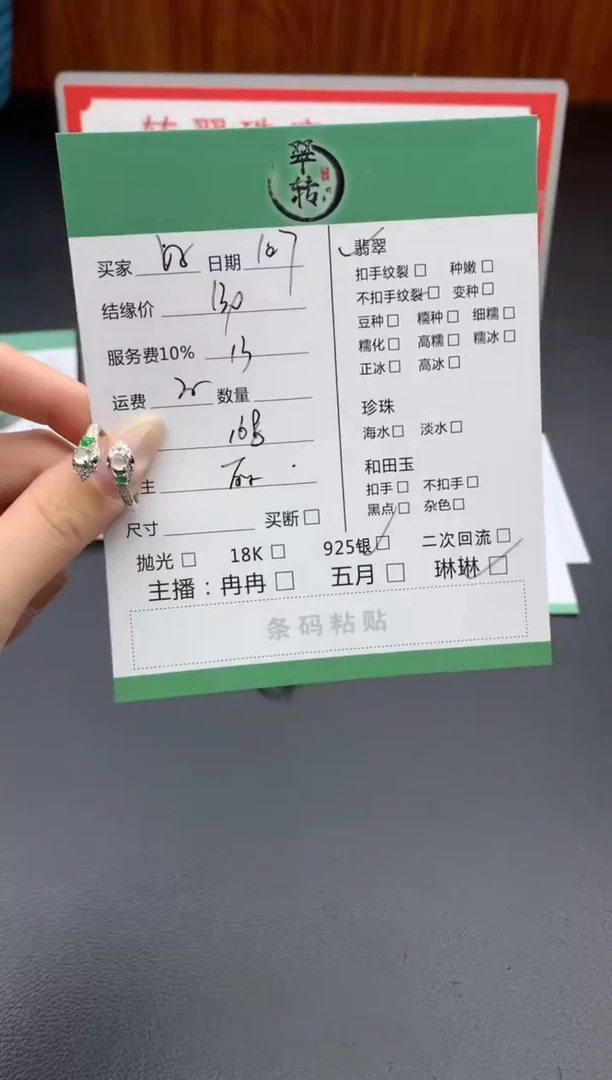 翠
转
买家 日期
结缘价 130
服务费10% 13
运费 数量
168
主
尺寸 买断
翡翠
扣手纹裂 种嫩
不扣手纹裂 变种
豆种 糯种 细糯
糯化 高糯 糯冰
正冰 高冰
珍珠
海水 淡水
和田玉
扣手 不扣手
黑点 杂色
抛光 18K 925银 二次回流
主播：冉冉 五月 琳琳
条码粘贴